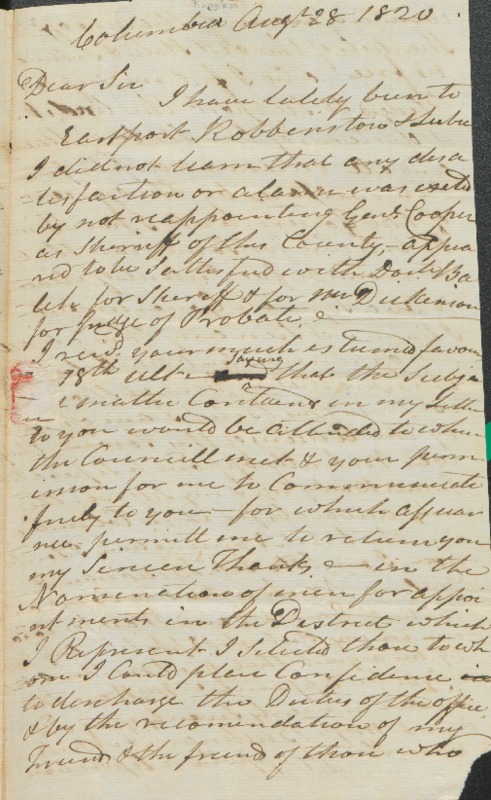 Columbia Augt 28 1820
Dear Sir
I have lately been to
Eastport Robbinston & Lubec
I did not learn that any disa
tisfaction or alarm was exited
by not reappointing Genl. Cooper
as Sheriff of this County - appea
red to be satisfied with Doct Ba
lch for Sheriff & for Mr Dickenson
for Judge of Probate &
I recd. your much esteemed favour
18th ult saying that the subje
matter Contained in my Letter
to you would be attended to when
the Councill met & your perm
ission for me to Communicate
freely to you - for which assuar
nce permitt me to return you
my Sincere Thanks & in the
Nomination of men for appoi
ntments in the District which
I Represent I Selected those to wh
om I Could place Confidence
to discharge the Duties of the office
& by the recomendation of my
Friends & the friend of those who